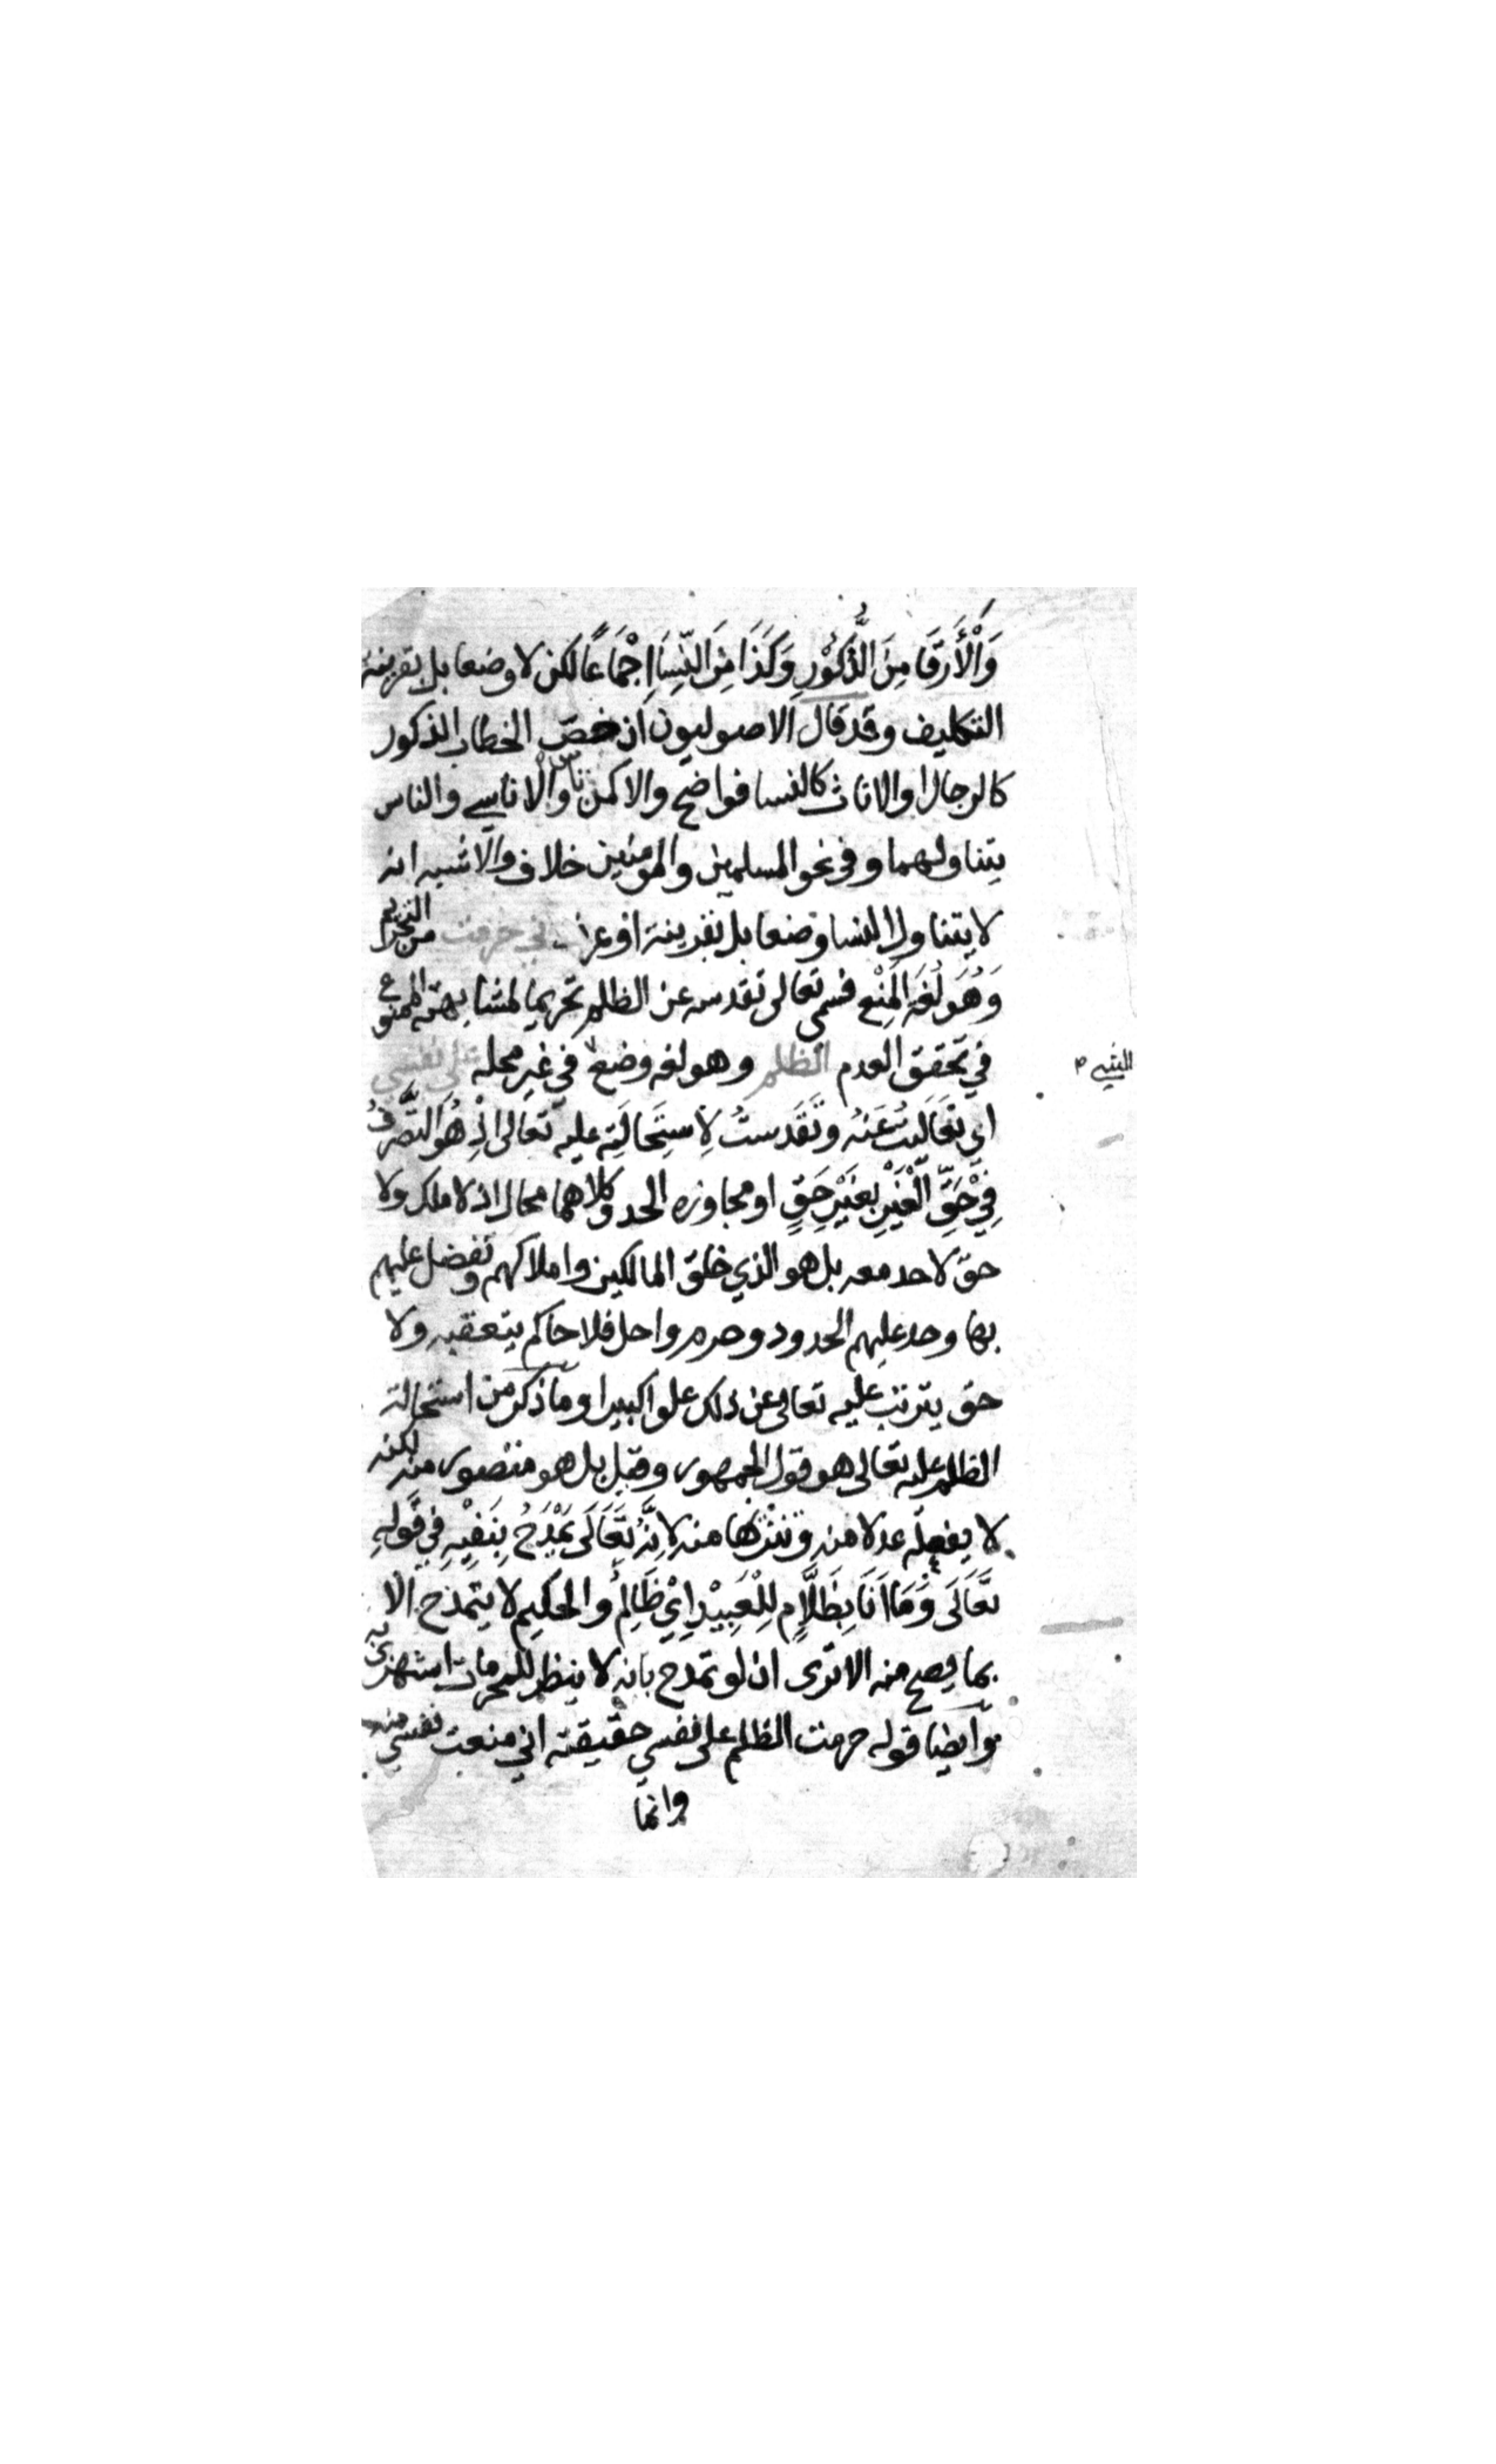 وَالْأَرَقَا مِنَ الذُّكُوْرِ وَكَذَا مِنَ النِّسَا اِجْمَاعًا لكن لا وضعا بل بقرينة
التكليف وقد قال الاصوليون ان خصّ الخطاب الذكور
كالرجال او الاناث كالنسا فواضح والا كمن ناس والاناسي والناس
يتناولهما وفي نحو المسلمين والمومنين خلاف والاشبه انه
لا يتناول النسا وضعا بل بقرينة او عرف اني حرمت من التحريم
وَهُوَ لُغَةً الْمَنْع فسمى تعالى تقدسه عن الظلم تحريما لمشابهته الممنوع
في تحقق العدم الظلم وهو لغه وضع في غير محله على نفسي
الشيء م
اي تعَالَيتُ عَنهُ وتَقَدستُ لِاستِحَالَتِه عليه تعالى اذ هُوَ التَّصَرفُ
فِيْ حَقِّ الْغَيْرِ بِغَيْرِ حَقٍ او مجاوزه الحد وكلاهما محال اذ لا ملك ولا
حق لاحد معه بل هو الذي خلق المالكين واملاكهم وتفضل عليهم
بها وحد عليهم الحدود وحرم واحل فلا حاكم يتعقبه ولا
حق يترتب عليه تعالى عن ذلك علوا كبيرا وما ذكر من استحالة
الظلم عليه تعالى هو قول الجمهور وقيل بل هو متصور منه لكنه
لا يفعله عدلا منه وتنزها منه لِاَنَّهُ تَعَالَى تَمْدَحُ بِنَفْيِهِ فِي قَولِهِ
تَعَالَى وَمَا اَنَا بِظَلَّامٍ لِلْعَبِيْدِ اِيْ ظَالِم والحكيم لا يتمدح الا
بما يصح منه الا ترى ان لو تمدح بانه لا ينظر للمحرمات استهزئ به
وايضا قوله حرمت الظلم على نفسي حقيقته اني منعت نفسي منه
وانما